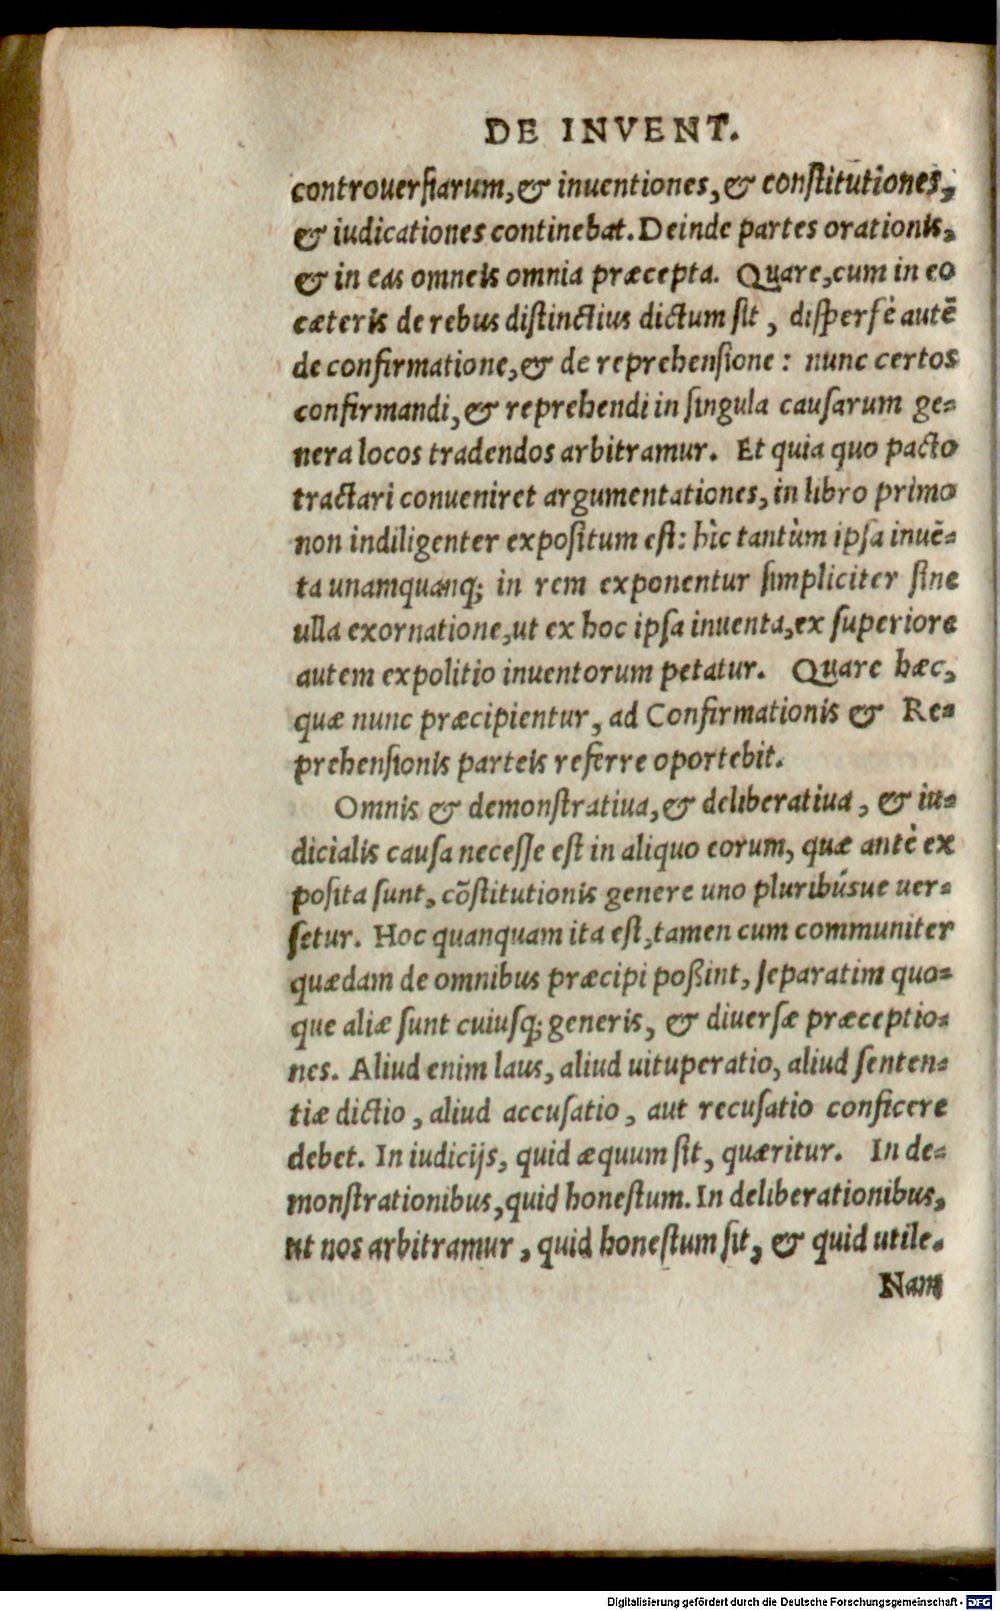 DE INVENT.
controuerſiarum, & inuentiones, & conſtitutiones,
& iudicationes continebat. Deinde partes orationis,
& in eas omneis omnia præcepta. Quare, cum in eo
cæteris de rebus diſtinctius dictum ſit, diſperſè autē
de confirmatione, & de reprehenſione: nunc certos
confirmandi, & reprehendi in ſingula cauſarum ge=
nera locos tradendos arbitramur. Et quia quo pacto
tractari conueniret argumentationes, in libro primo
non indiligenter expoſitum eſt: hìc tantùm ipſa inuē=
ta unamquanq; in rem exponentur ſimpliciter ſine
ulla exornatione, ut ex hoc ipſa inuenta, ex ſuperiore
autem expolitio inuentorum petatur. Quare hæc,
quæ nunc præcipientur, ad Confirmationis & Re=
prehenſionis parteis referre oportebit.
Omnis & demonſtratiua, & deliberatiua, & iu=
dicialis cauſa neceſſe eſt in aliquo eorum, quæ antè ex
poſita ſunt, cōſtitutionis genere uno pluribúsue uer=
ſetur. Hoc quanquam ita eſt, tamen cum communiter
quædam de omnibus præcipi poßint, ſeparatim quo=
que aliæ ſunt cuiuſq; generis, & diuerſæ præceptio=
nes. Aliud enim laus, aliud uituperatio, aliud ſenten=
tiæ dictio, aliud accuſatio, aut recuſatio conficere
debet. In iudicijs, quid æquum ſit, quæritur. In de=
monſtrationibus, quid honeſtum. In deliberationibus,
ut nos arbitramur, quid honeſtum ſit, & quid utile.
Nam
Digitalisierung gefördert durch die Deutsche Forschungsgemeinschaft - DFG